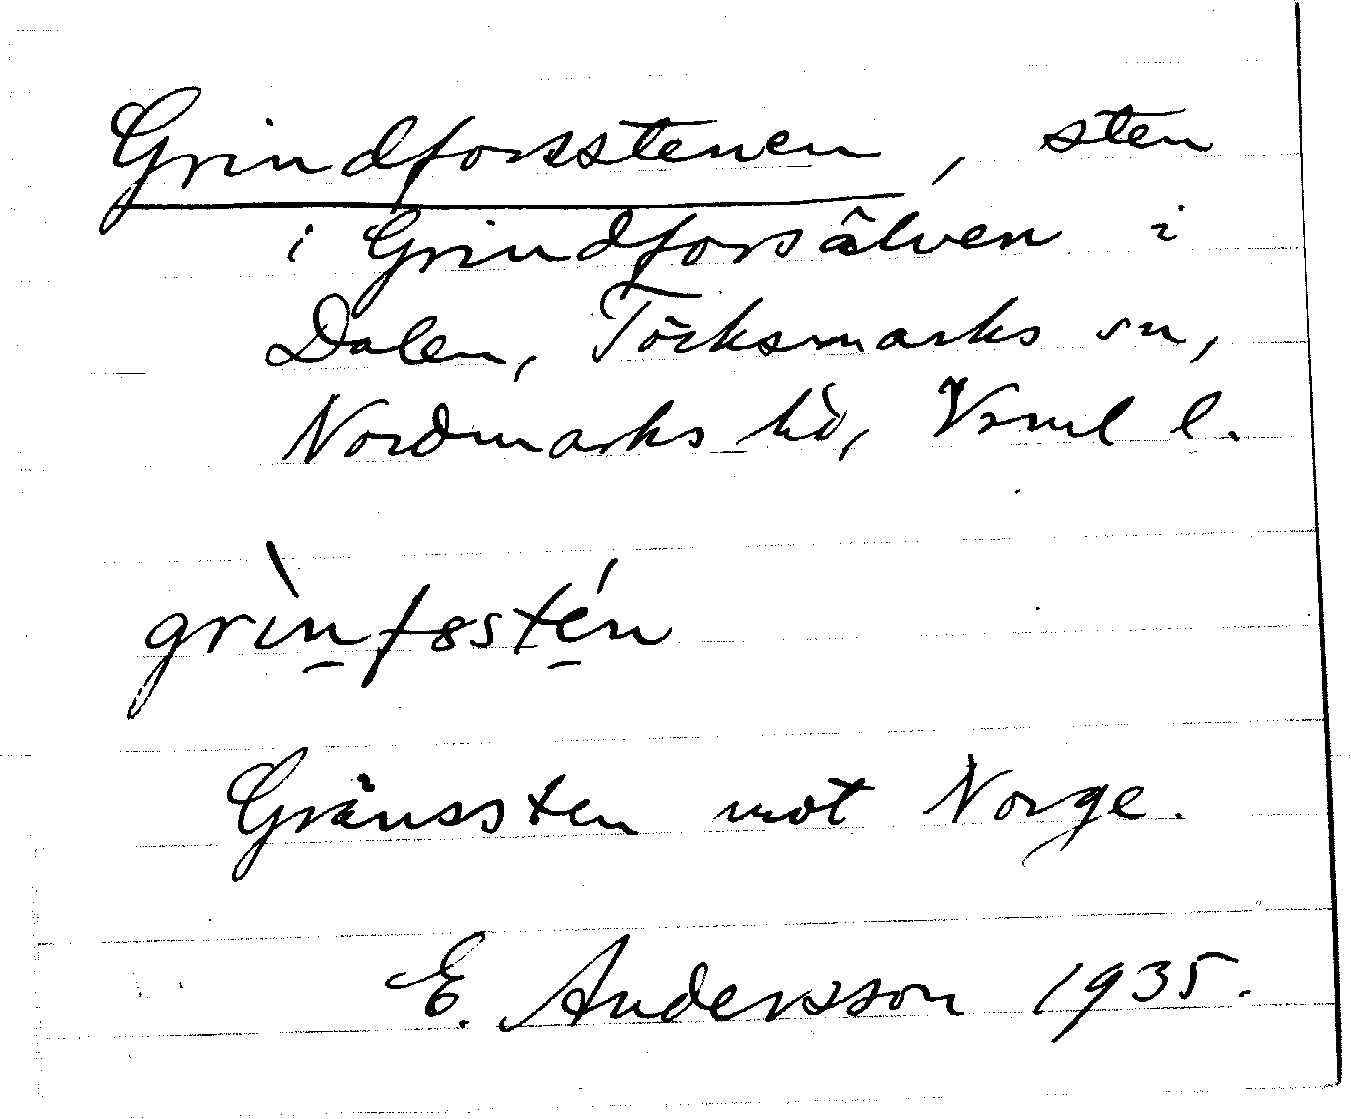 Grindforsstenen, sten
i Grindforsälven i
Dalen, Töcksmarks sn,
Nordmarks hd, Vrml l.
grìnfɷsstén
Gränssten mot Norge.
E. Andersson 1935.